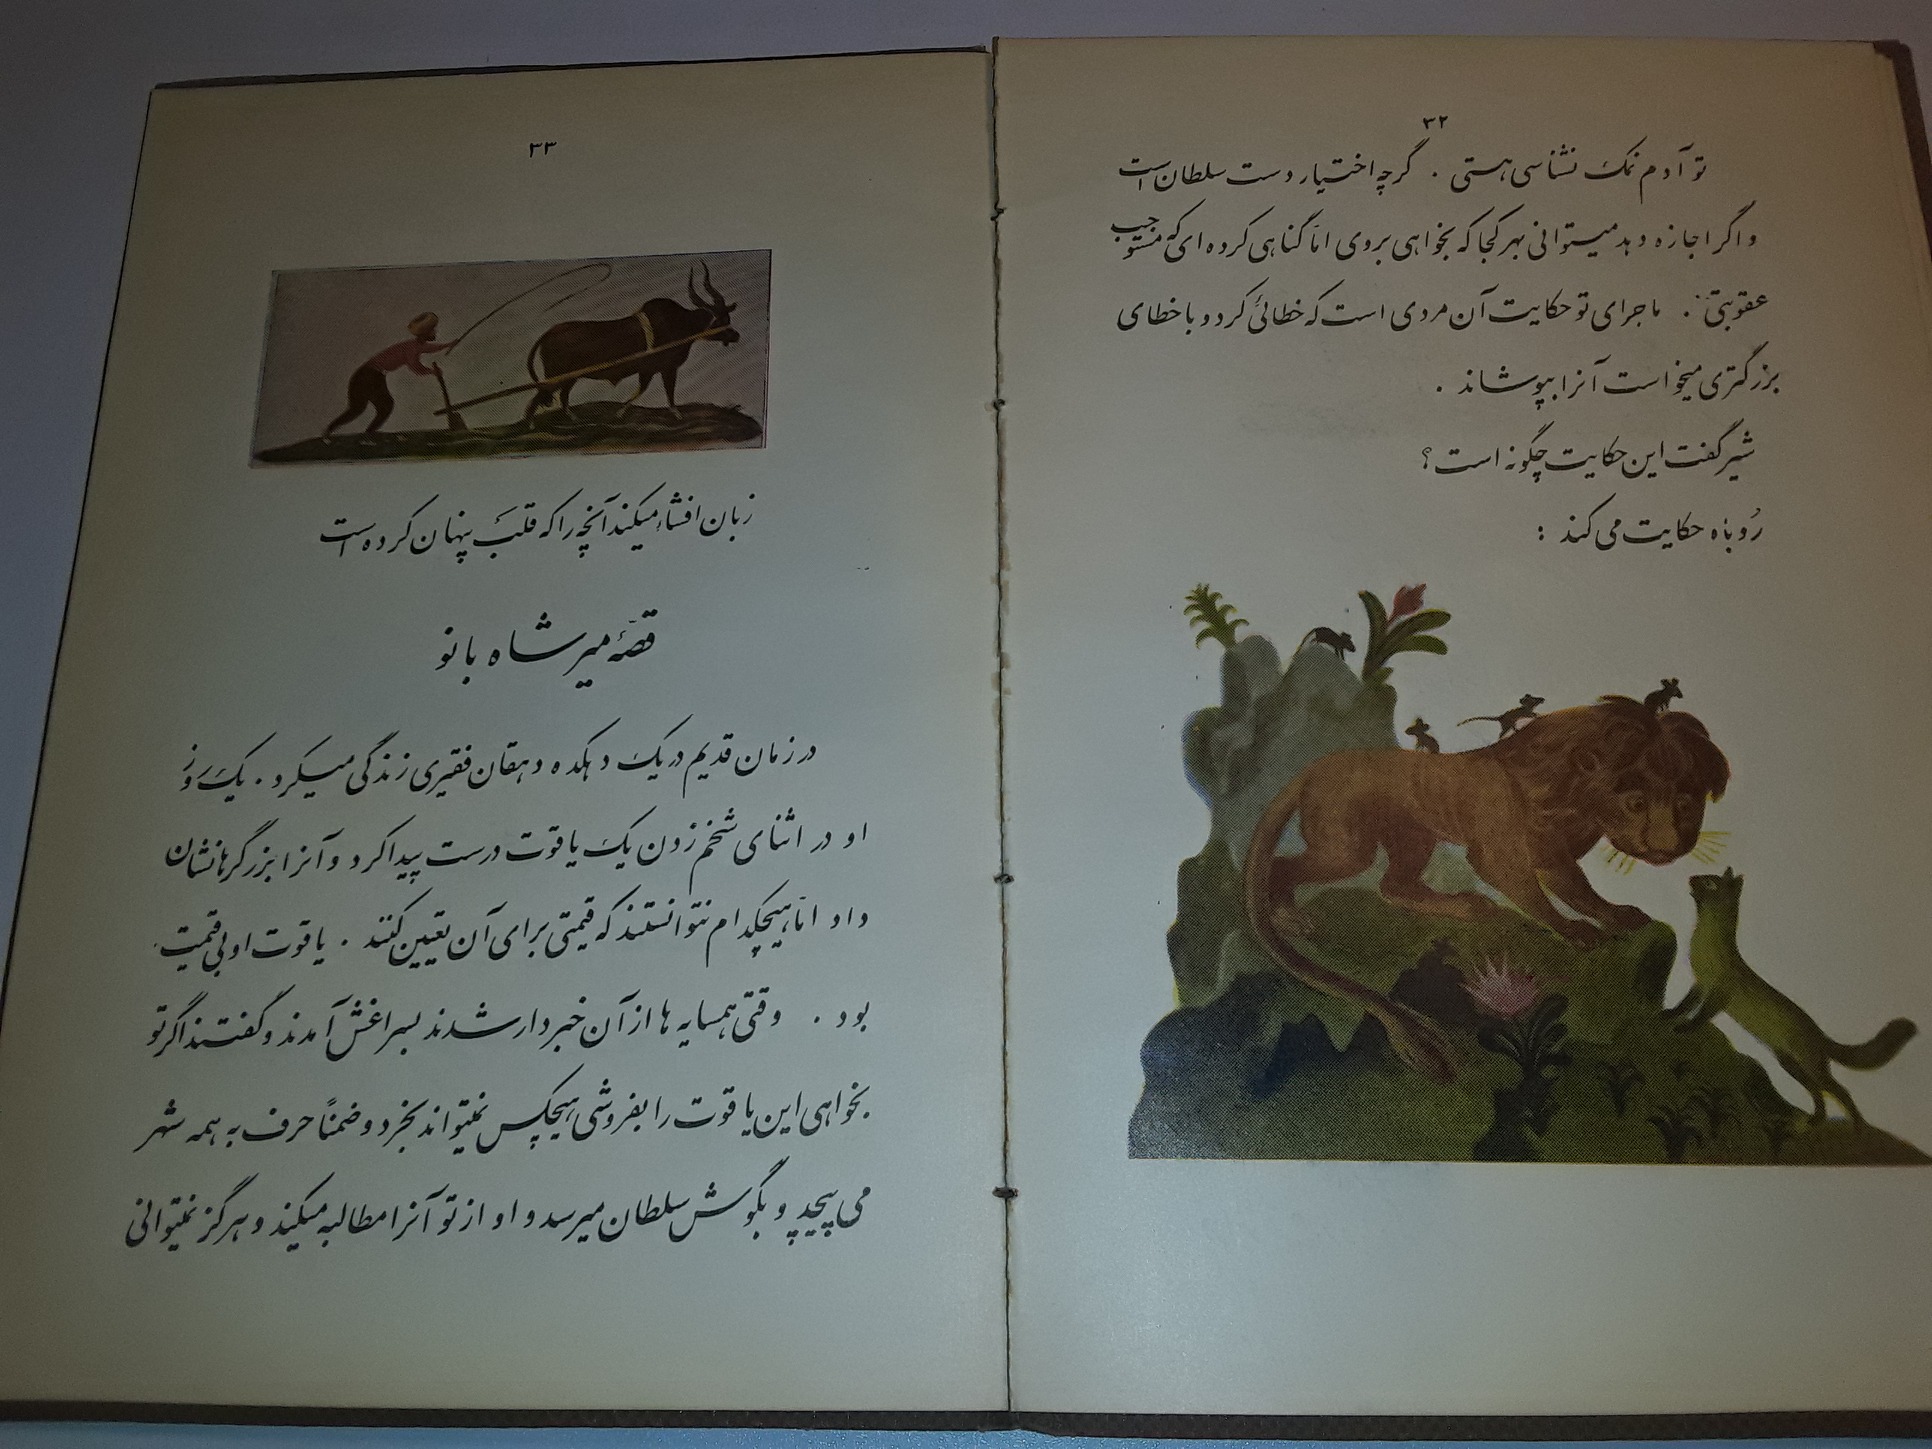 ۳۲
تو آدم نمک نشناسی هستی . گرچه اختیار دست سلطان است
و اگر اجازه دهد میتوانی بهر کجا که بخواهی بروی امّا گناهی کرده ای که مستوجب
عقوبتی . ماجرای تو حکایت آن مردی است که خطائی کرد و با خطای
بزرگتری میخواست آنرا بپوشاند .
شیر گفت این حکایت چگونه است ؟
رُوباه حکایت می کند :
۳۳
زبان افشاء میکند آنچه را که قلب پنهان کرده است
قصّهٔ میر شاه بانو
در زمان قدیم در یک دهکده دهقان فقیری زندگی میکرد . یک روز
او در اثنای شخم زدن یک یاقوت درست پیدا کرد و آنرا بزرگرها نشان
داد امّا هیچکدام نتوانستند که قیمتی برای آن تعیین کنند . یاقوت او بی قیمت
بود . وقتی همسایه ها از آن خبردار شدند بسراغش آمدند و گفتند اگر تو
بخواهی این یاقوت را بفروشی هیچکس نمیتواند بخرد و ضمناً حرف به همه شهر
می پیچد و بگوش سلطان میرسد و او از تو آنرا مطالبه میکند و هرگز نمیتوانی